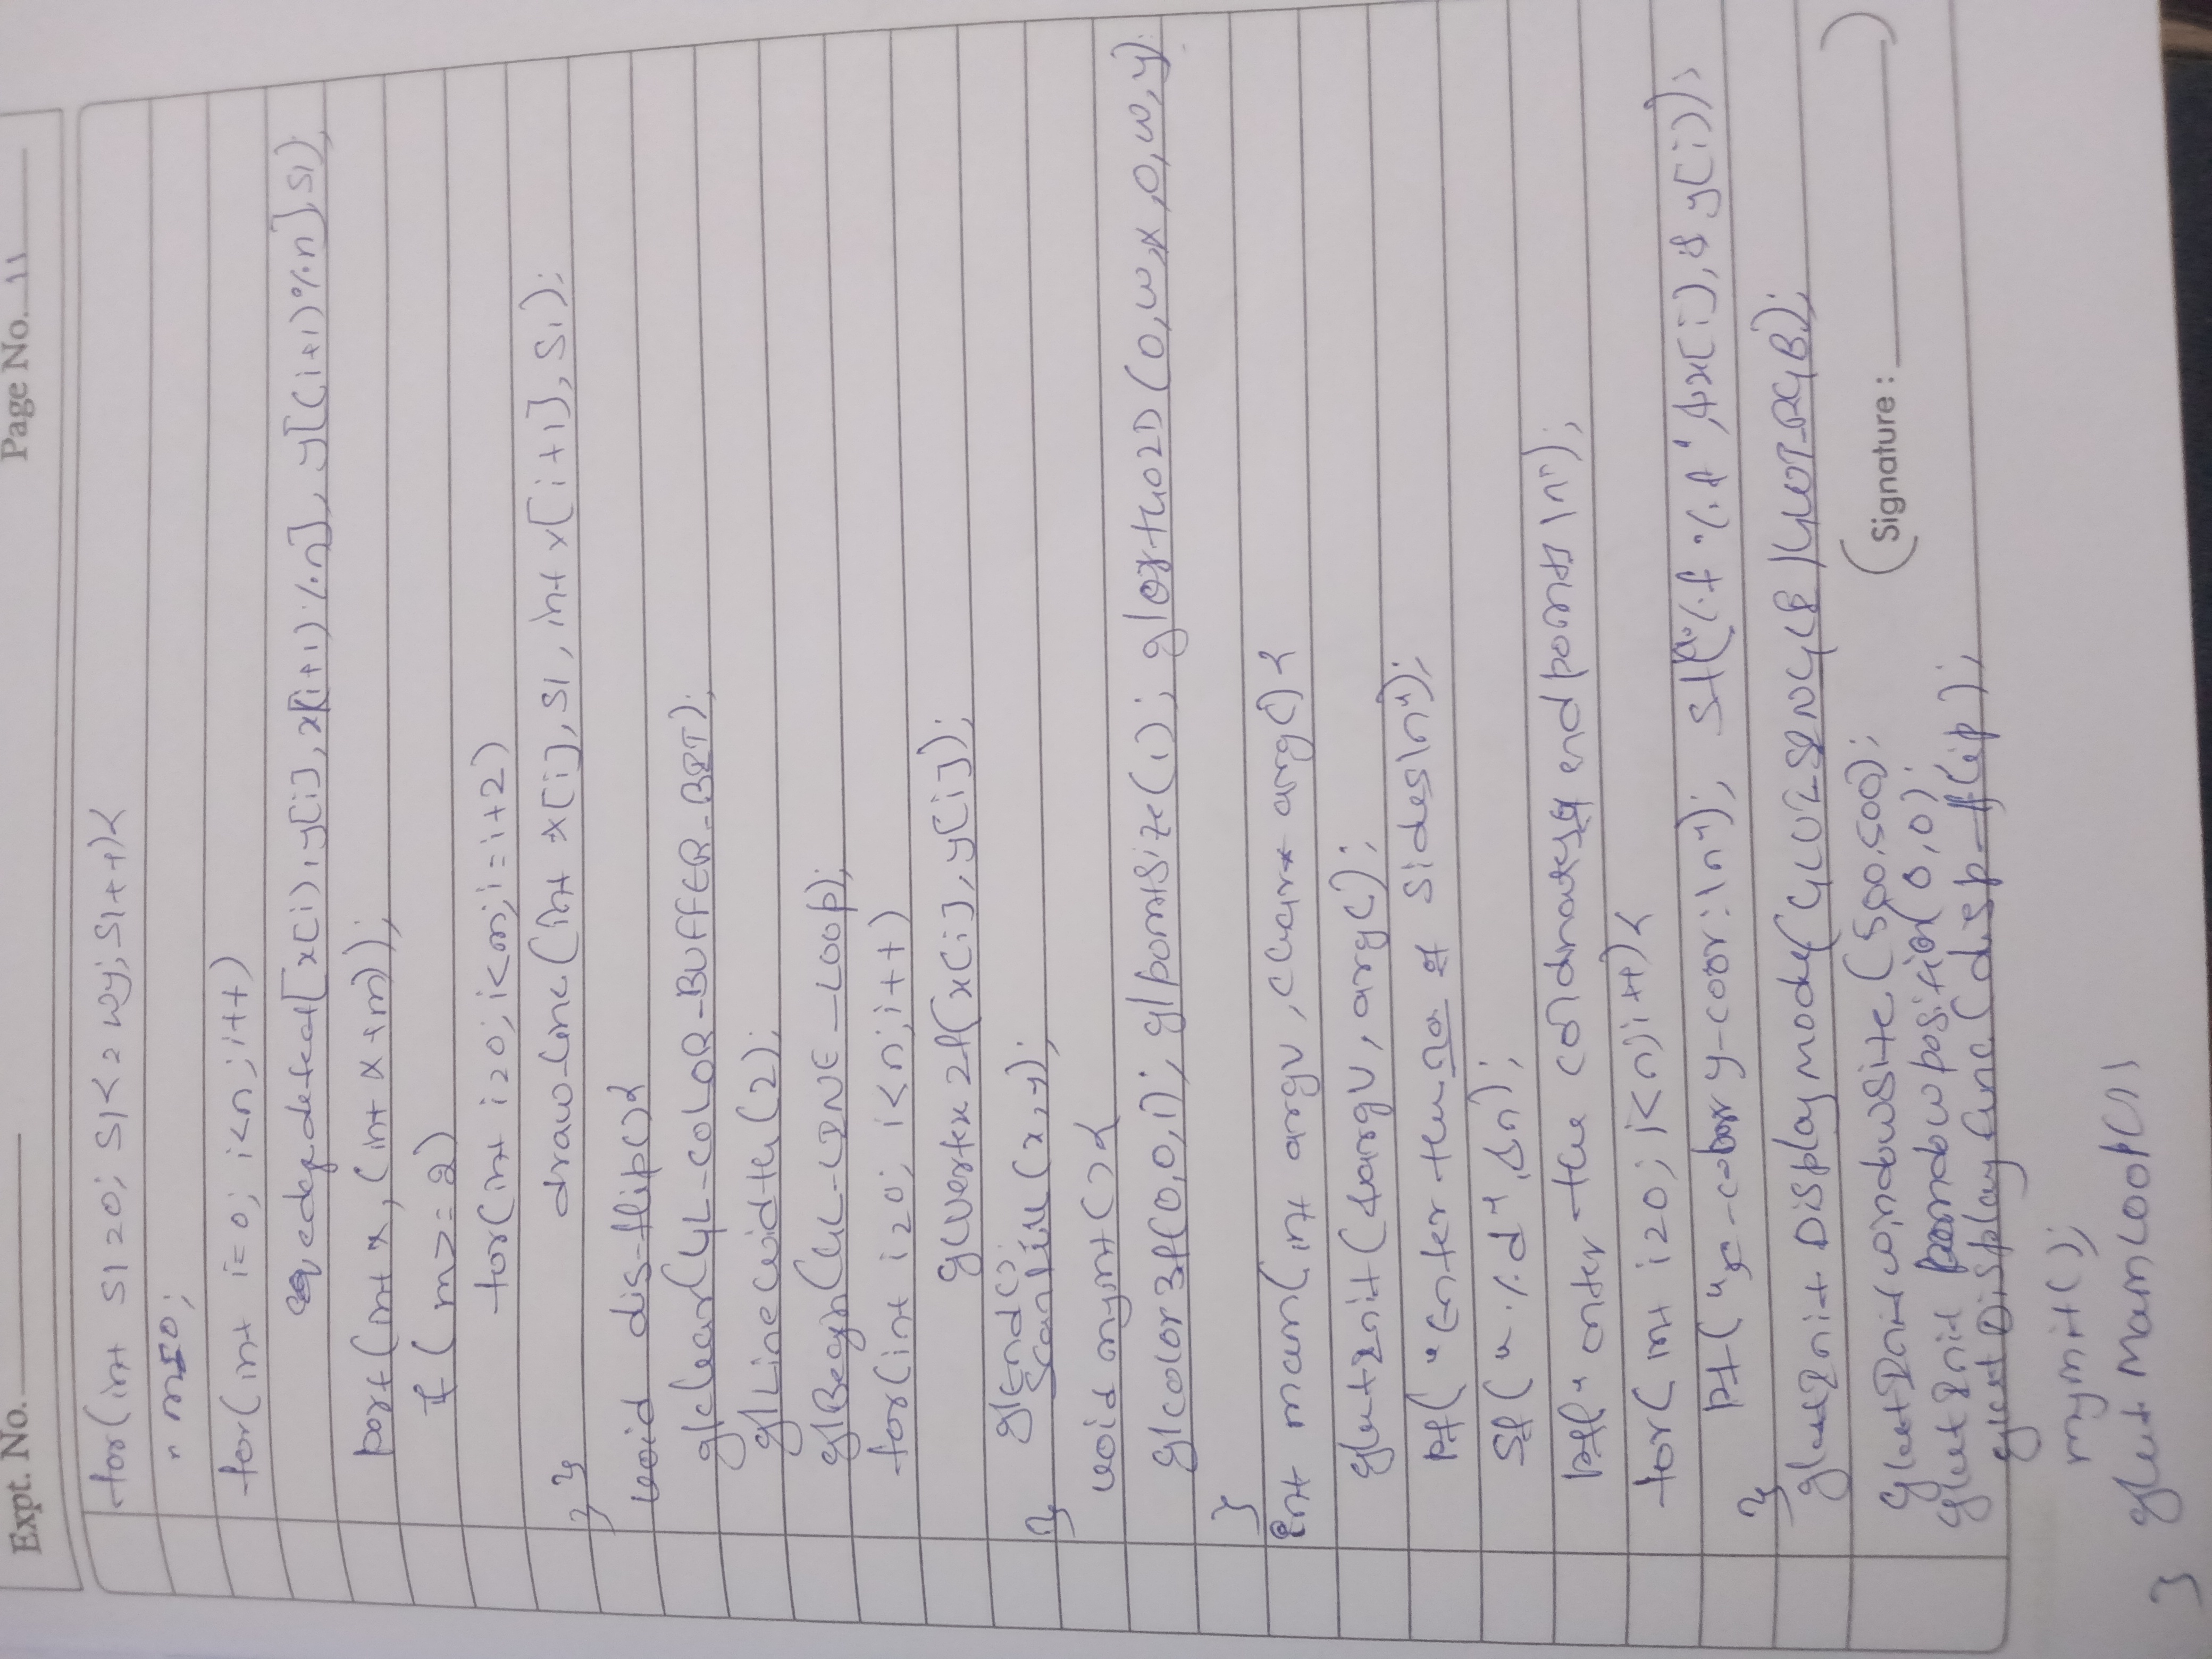 Expt. No. Page No. 11
for(int s1=0; s1<=wy; s1++){
m=0;
for(int i=0; i<n; i++)
edgedetect[x[i], y[i], x[(i+1)%n], y[(i+1)%n], s1);
sort(int x, (int x+m));
if(m>=2)
for(int i=0; i<m; i=i+2)
drawline(int x[i], s1, int x[i+1], s1);
}}
void dis-flip(){
glclear(GL-COLOR-BUFFER-BIT);
glLinewidth(2);
glBegin(GL-LINE-LOOP);
for(int i=0; i<n; i++)
glvertex2f(x[i], y[i]);
glEnd();
scanfill(x,y);
}
void myinit(){
glcolor3f(0,0,1); glpointsize(1); glortho2D(0,wx,0,wy);
}
int main(int argv, char* argc){
glutInit(&argv, argc);
Pf("Enter the no of sides\n");
Sf("%d", &n);
Pf(" enter the cordinates of endpoints\n");
for(int i=0; i<n; i++){
Pf("x-coor y-coor:\n"); Sf("%f %f", &x[i], &y[i]);
}
glutInitDisplaymode(GLUT_SINGLE|GLUT_RGB);
glutInitwindowsize(500,500);
glutInit windowposition(0,0);
glutDisplayfunc(disp-flip);
(Signature : )
myinit();
glutMainLoop();
}